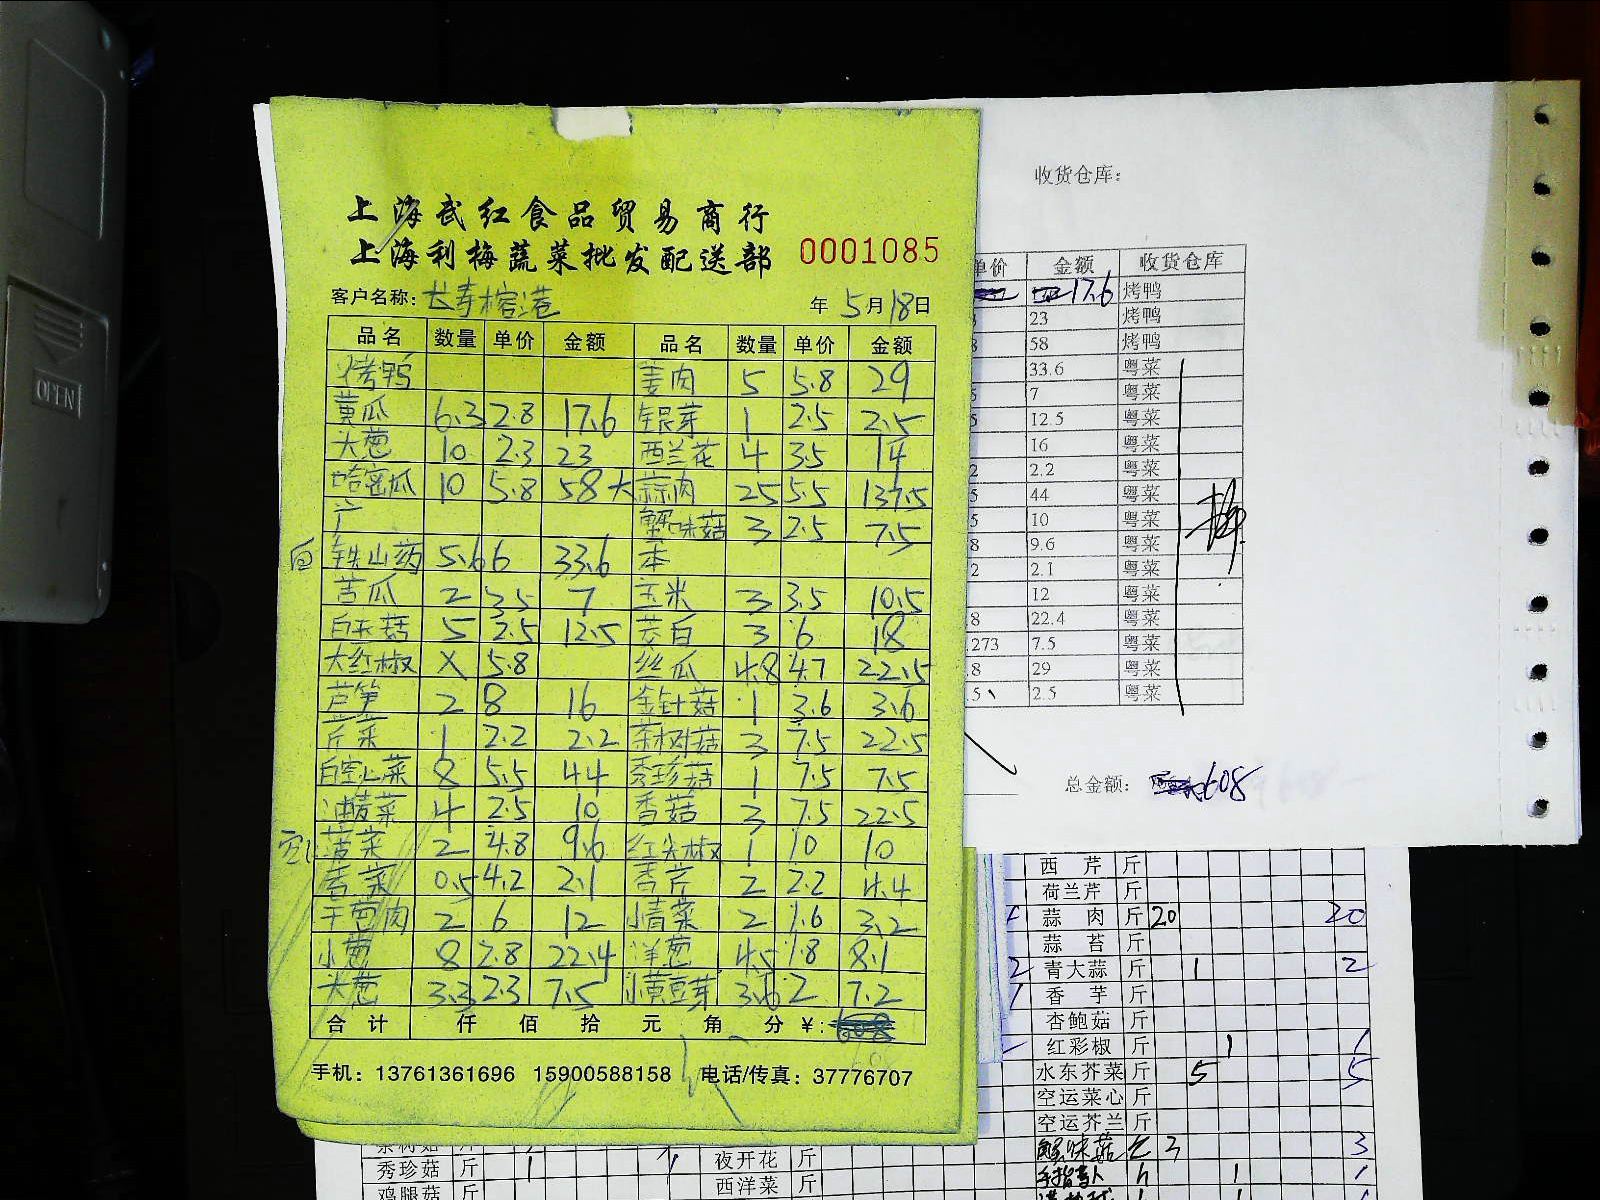 上海武红食品贸易商行
上海利梅蔬菜批发配送部 0001085
客户名称: 长寿榕港 年 5月18日
品名 数量 单价 金额 品名 数量 单价 金额
烤鸭 姜肉 5 5.8 29
黄瓜 6.3 2.8 17.6 银芽 1 2.5 2.5
大葱 10 2.3 23 西兰花 4 3.5 14
哈密瓜 10 5.8 58 大蒜肉 25 5.5 137.5
广 蟹味菇 3 2.5 7.5
铁山药 5.6 6 33.6 本
苦瓜 2 3.5 7 玉米 3 3.5 10.5
白玉菇 5 2.5 12.5 茭白 3 6 18
大红椒 X 5.8 丝瓜 4.8 4.7 22.5
芦笋 2 8 16 金针菇 1 3.6 3.6
芹菜 1 2.2 2.2 茶树菇 3 7.5 22.5
白空心菜 8 5.5 44 秀珍菇 1 7.5 7.5
油麦菜 4 2.5 10 香菇 3 7.5 22.5
菠菜 2 4.8 9.6 红尖椒 1 10 10
香菜 0.5 4.2 2.1 香芹 2 2.2 4.4
干葱肉 2 6 12 小青菜 2 1.6 3.2
小葱 8 2.8 22.4 洋葱 4.5 1.8 8.1
大葱 3.3 2.3 7.5 小黄豆芽 3.6 2 7.2
合计 仟 佰 拾 元 角 分 ¥:
手机: 13761361696 15900588158 电话/传真: 37776707
收货仓库:
单价 金额 收货仓库
17.6 烤鸭
23 烤鸭
58 烤鸭
33.6 粤菜
7 粤菜
12.5 粤菜
16 粤菜
2.2 粤菜
44 粤菜
10 粤菜
9.6 粤菜
2.1 粤菜
12 粤菜
22.4 粤菜
273 7.5 粤菜
.8 29 粤菜
.5 2.5 粤菜
总金额: 608
西芹 斤
荷兰芹 斤
蒜肉 斤 20 20
蒜苔 斤
青大蒜 斤 1 2
香芋 斤
杏鲍菇 斤
红彩椒 斤 1 1
水东芥菜 斤 5 5
空运菜心 斤
空运芥兰 斤
蟹味菇 3 3
秀珍菇 斤 1 1 夜开花 斤
鸡腿菇 斤 西洋菜 斤